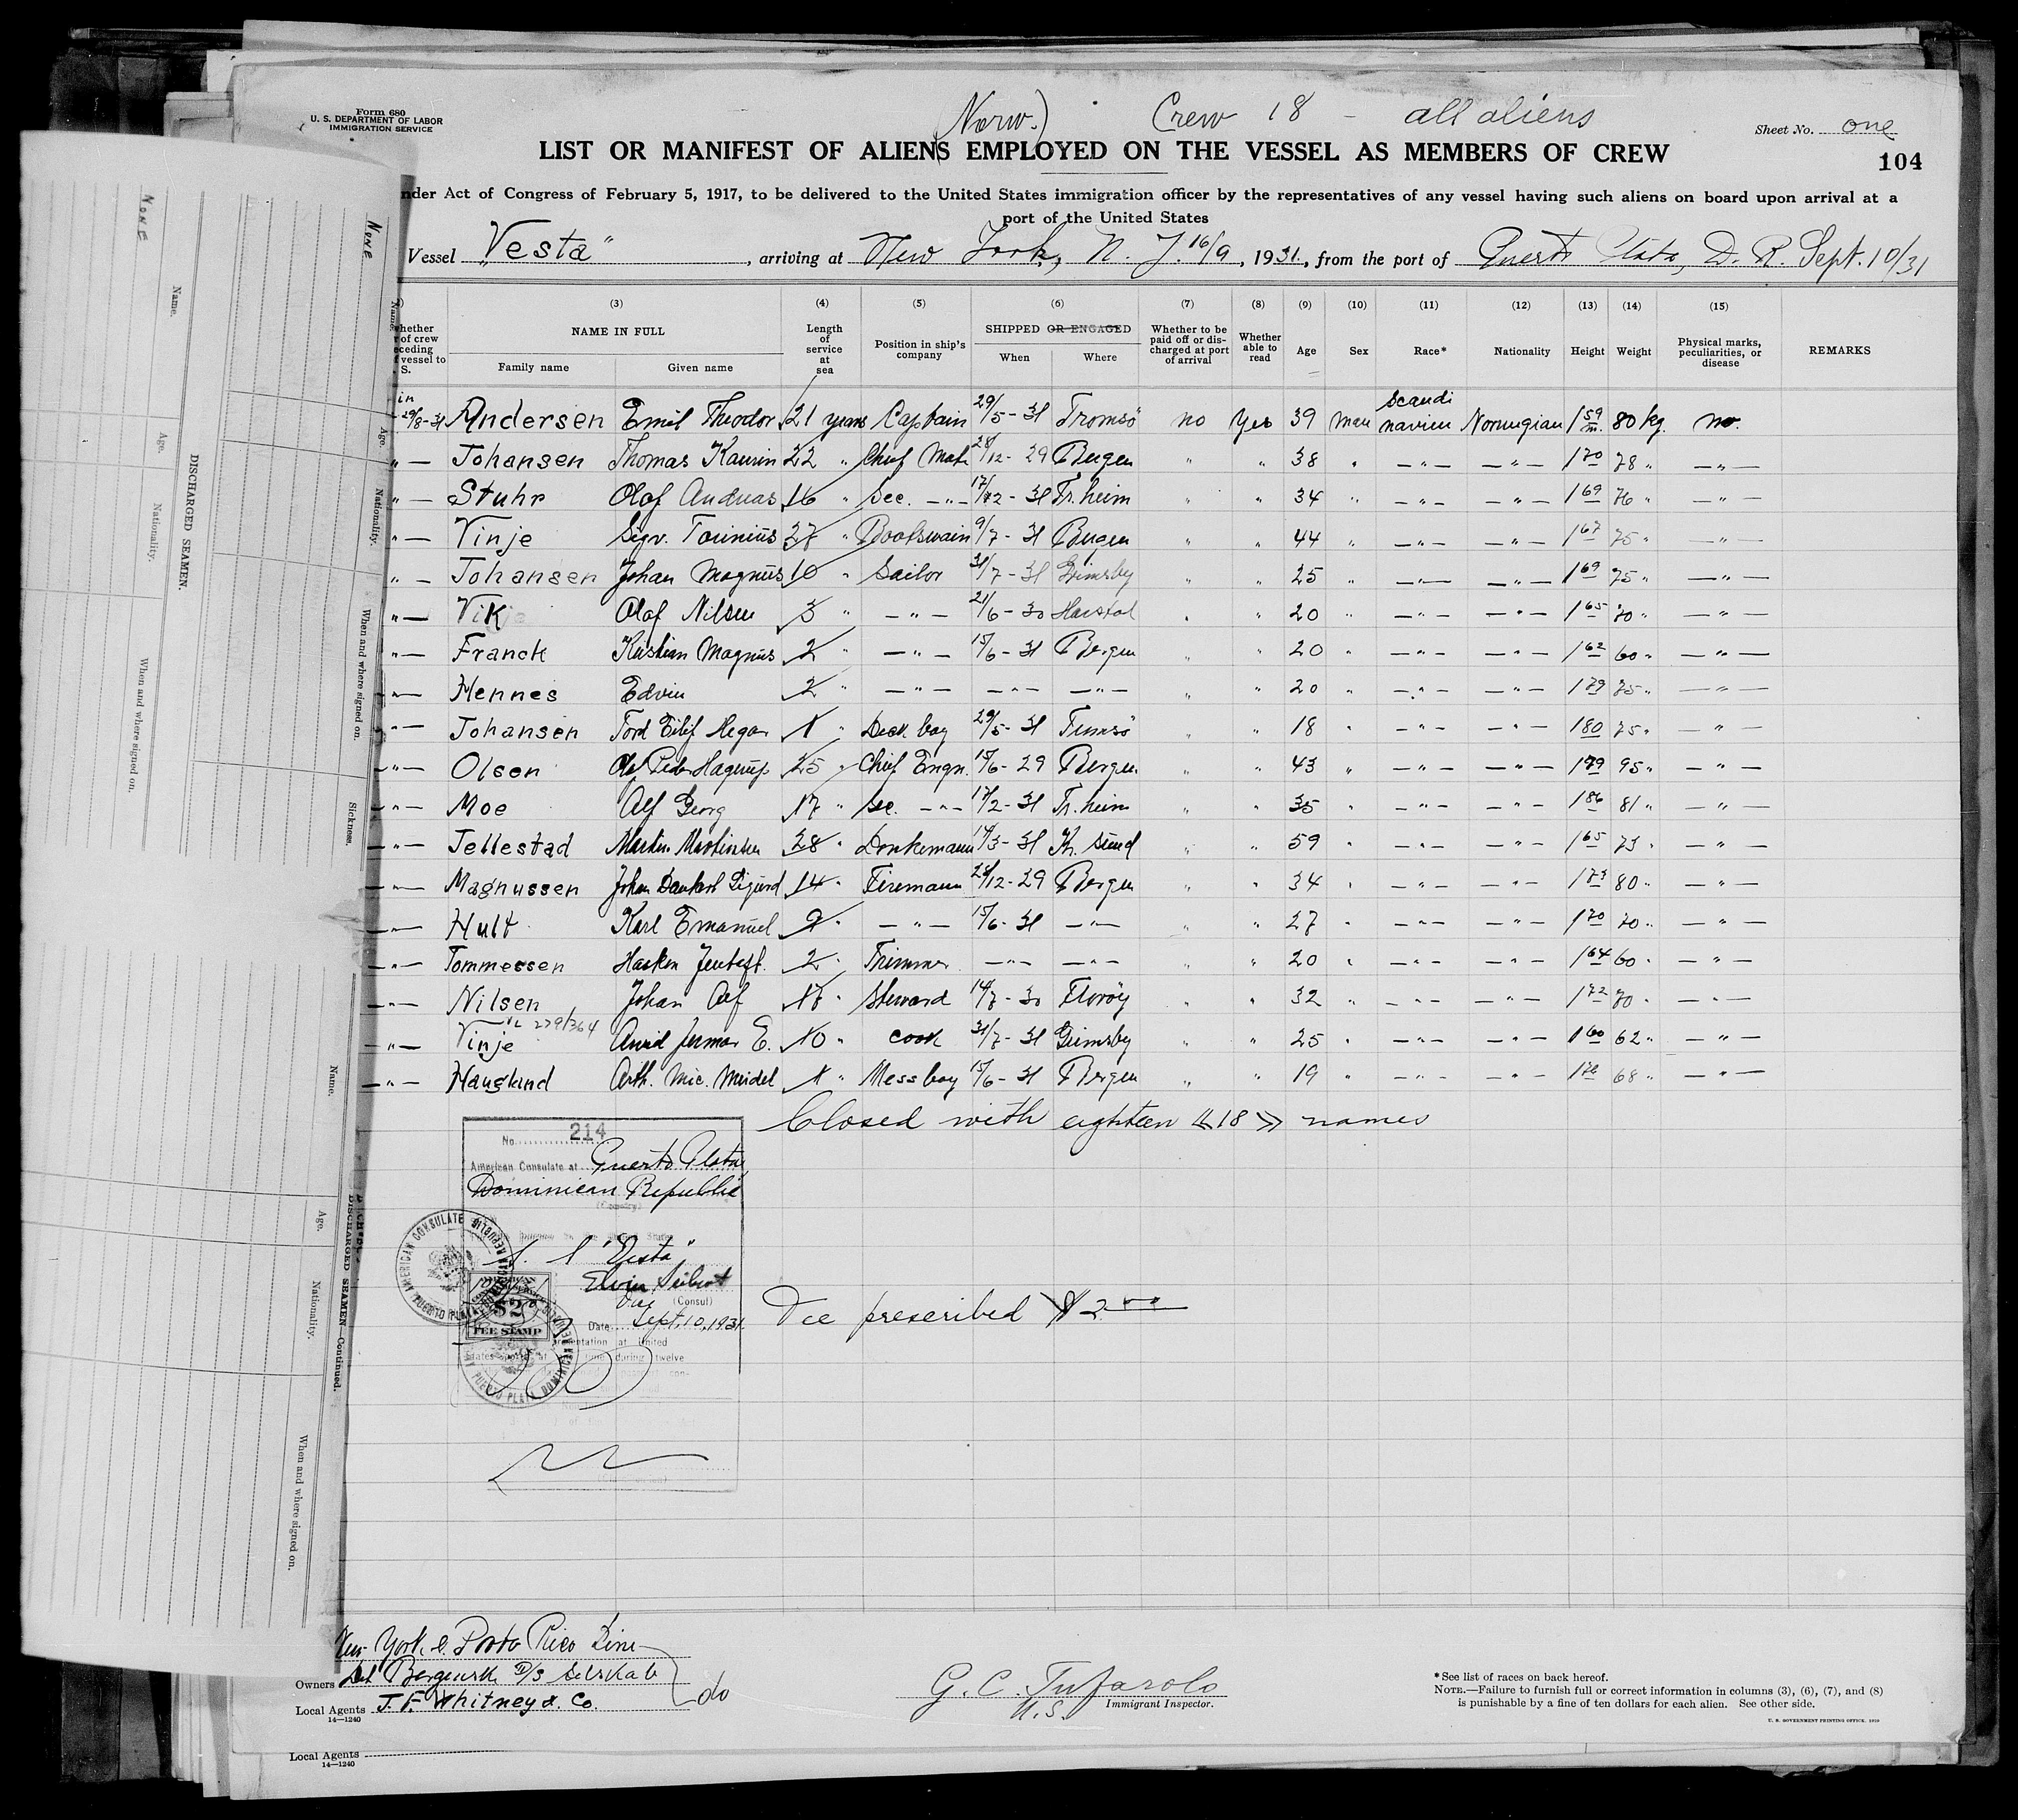 Form 680
U. S. DEPARTMENT OF LABOR
IMMIGRATION SERVICE
(Norw.) Crew 18 - all aliens
Sheet No. one
LIST OR MANIFEST OF ALIENS EMPLOYED ON THE VESSEL AS MEMBERS OF CREW
104
nder Act of Congress of February 5, 1917, to be delivered to the United States immigration officer by the representatives of any vessel having such aliens on board upon arrival at a
port of the United States
Vessel "Vesta", arriving at New York, N. Y. 16/9, 1931, from the port of Puerto Plata, D. R. Sept. 10/31
(3) (4) (5) (6) (7) (8) (9) (10) (11) (12) (13) (14) (15)
NAME IN FULL Family name Given name
Length of service at sea
Position in ship's company
SHIPPED OR ENGAGED When Where
Whether to be paid off or discharged at port of arrival
Whether able to read
Age Sex Race* Nationality Height Weight
Physical marks, peculiarities, or disease
REMARKS
in 29/8-31 Andersen Emil Theodor 21 years Captain 29/5 - 31 Tromsö no Yes 39 man Scandinavien Norwegian 1 59 m. 80 kg. no.
" — Johansen Thomas Kaurin 22 " Chief Mate 28/12 - 29 Bergen " " 38 " — " — — " — 1 70 78 " — " —
" — Stuhr Olaf Andreas 16 " Sec. — " — 17/2 - 31 Tr.heim " " 34 " — " — — " — 1 69 76 " — " —
" — Vinje Sigv. 37 " Bootswain 9/7 - 31 Bergen " " 44 " — " — — " — 1 67 75 " — " —
" — Johansen Johan Magnus 10 " Sailor 31/7 - 31 Grimsby " " 25 " — " — — " — 1 69 75 " — " —
" — Vik Olaf Nilsen 3 " — " — 21/6 - 30 " " 20 " — " — — " — 1 65 70 " — " —
" — Franck Kristian Magnus 2 " — " — 15/6 - 31 Bergen " " 20 " — " — — " — 1 62 60 " — " —
" — Hennes Edvin 2 " — " — — " — — " — " " 20 " — " — — " — 1 79 75 " — " —
" — Johansen Tord Eilif 1 " Deck boy 29/5 - 31 Tromsö " " 18 " — " — — " — 1 80 75 " — " —
" — Olsen Ole Peder Hagerup 25 " Chief Engn. 15/6 - 29 Bergen " " 43 " — " — — " — 1 79 95 " — " —
" — Moe Alf Georg 17 " Sec. — " — 17/2 - 31 Tr.heim " " 35 " — " — — " — 1 86 81 " — " —
" — Tellestad Martin Martinsen 28 " Donkemann 14/3 - 31 Kr. sund " " 59 " — " — — " — 1 65 73 " — " —
" — Magnussen Johan Sigurd 14 " Firemann 28/12 - 29 Bergen " " 34 " — " — — " — 1 73 80 " — " —
" — Hult Karl Emanuel 9 " — " — 15/6 - 31 — " — " " 27 " — " — — " — 1 70 70 " — " —
" — Tommessen Haakon 2 " Trimmer — " — — " — " " 20 " — " — — " — 1 64 60 " — " —
" — Nilsen Johan Alf 17 " Steward 14/7 - 30 Floröy " " 32 " — " — — " — 1 72 70 " — " —
279/364
" — Vinje E. 10 " cook 31/7 - 31 Grimsby " " 25 " — " — — " — 1 60 62 " — " —
" — Haugland Arth. Mic. Meidel 1 " Messboy 15/6 - 31 Bergen " " 19 " — " — — " — 1 76 68 " — " —
Closed with eighteen «18» names
No. 214
American Consulate at Puerto Plata
Dominican Republic
(Country)
S. S "Vesta"
Elvin Seibert
Vice (Consul)
Date Sept. 10, 1931.
AMERICAN CONSULATE
PUERTO PLATA
$2
FEE STAMP
Fee prescribed $2.00
New York & Porto Rico Line
Owners Det Bergenske D/S Selskab
Local Agents J. F. Whitney & Co.
do
14—1240
G. C. Tufarolo
U.S. Immigrant Inspector.
*See list of races on back hereof.
NOTE.—Failure to furnish full or correct information in columns (3), (6), (7), and (8)
is punishable by a fine of ten dollars for each alien. See other side.
U. S. GOVERNMENT PRINTING OFFICE. 1919
Local Agents
14—1240
NONE
NONE
DISCHARGED SEAMEN.
Name. Age. Nationality. When and where signed on. Sickness.
DISCHARGED SEAMEN—Continued.
Name. Age. Nationality. When and where signed on.